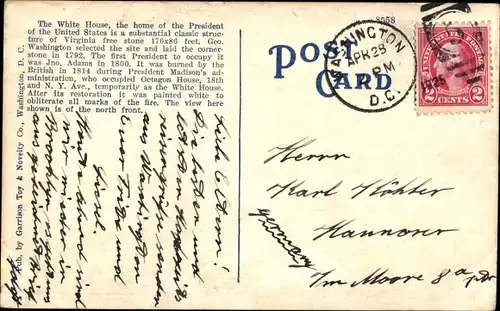 The White House, the home of the President
of the United States is a substantial classic struc-
ture of Virginia free stone 170x86 feet. Geo.
Washington selected the site and laid the corner-
stone in 1792. The first President to occupy it
was Jno. Adams in 1800. It was burned by the
British in 1814 during President Madison's ad-
ministration, who occupied Octagon House, 18th
and N. Y. Ave., temporarily as the White House.
After its restoration it was painted white to
obliterate all marks of the fire. The view here
shown is of the north front.
Pub. by Garrison Toy & Novelty Co., Washington, D. C.
POST
CARD
8558
WASHINGTON
APR 28
PM
D.C.
UNITED STATES POSTAGE
2 CENTS 2
Herrn
Karl Köhler
Hannover
Germany
Im Moore 8a
Liebe Eltern!
Die lieben und
aus Washington
Euer Frido und
Gerd.
Heute abend sind
wir wieder in
Brooklyn